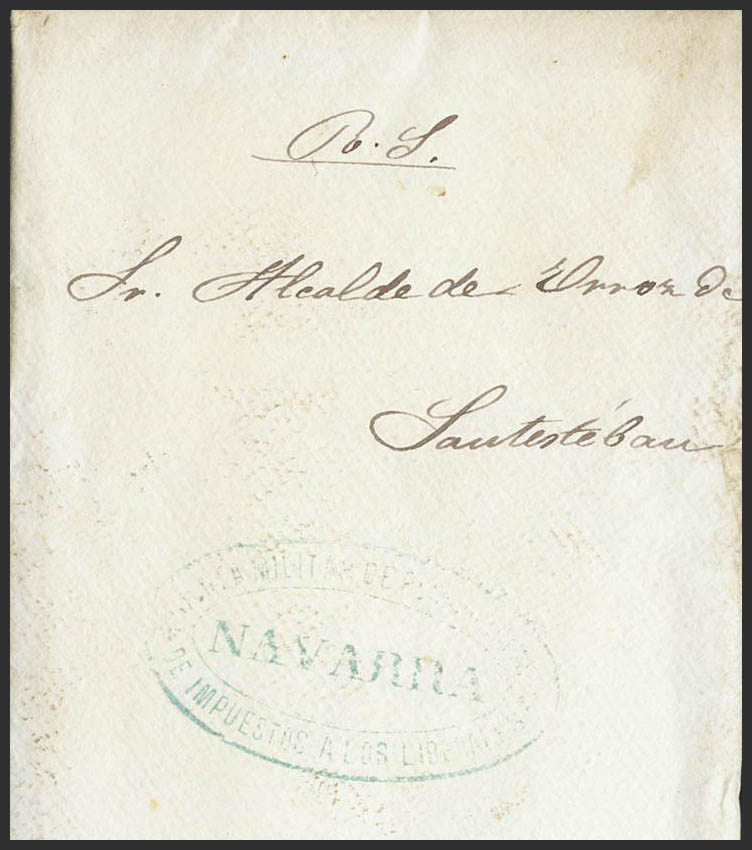 R. S.
Sr. Alcalde de Urroz de
Santestéban
MILITAR DE
NAVARRA
DE IMPUESTOS A LOS LIBERALES